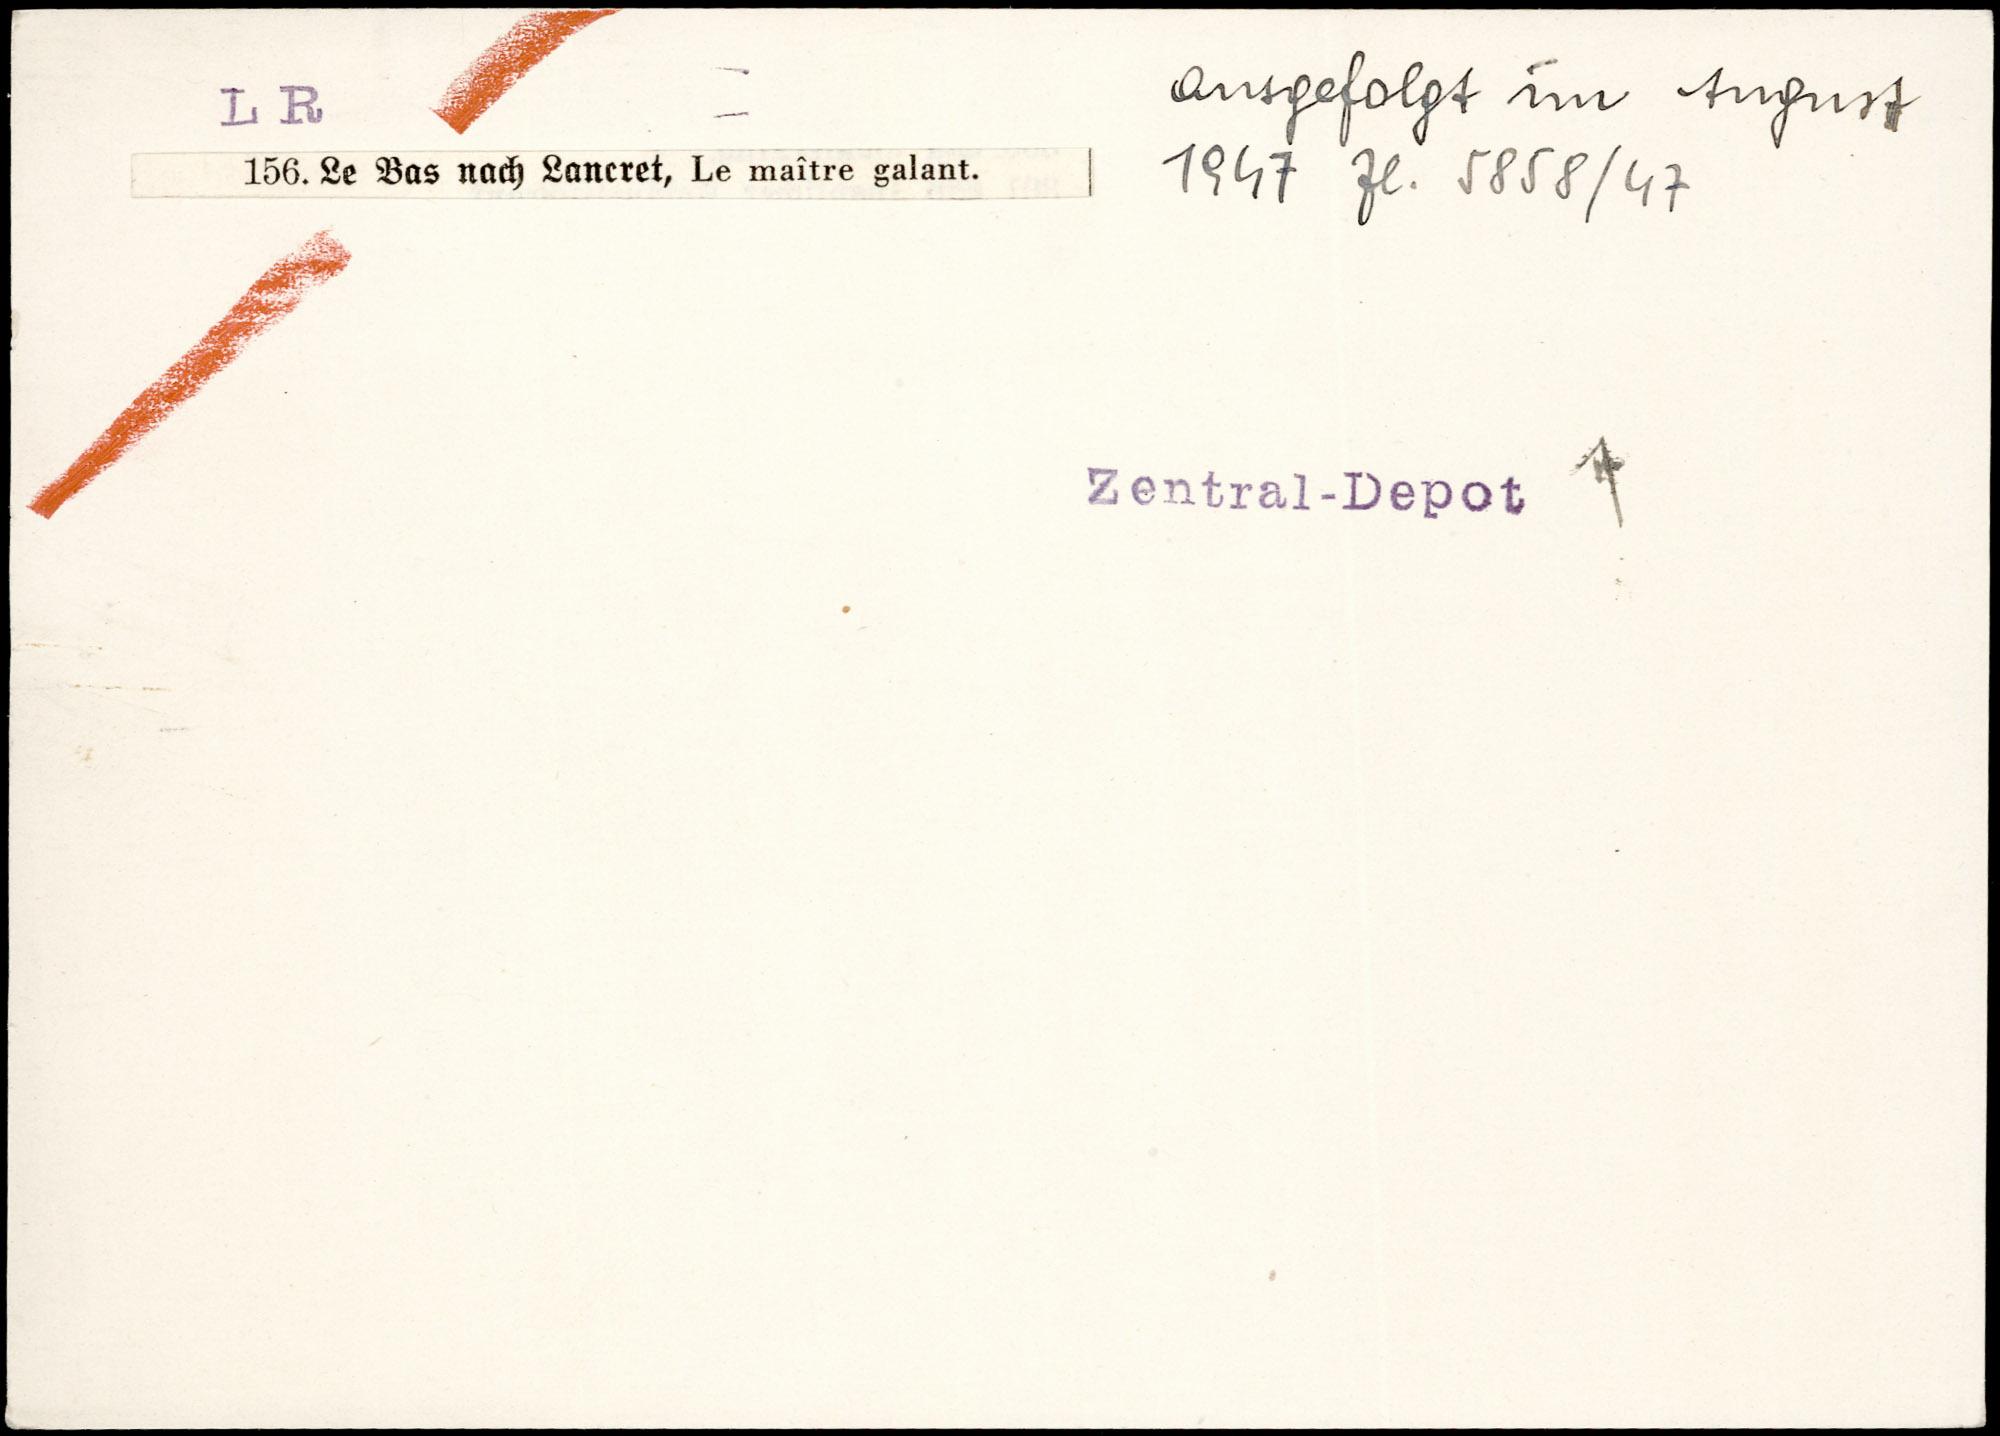 L R
156. Le Bas nach Lancret, Le maître galant.
ausgefolgt im August
1947 Zl. 5858/47
Zentral-Depot